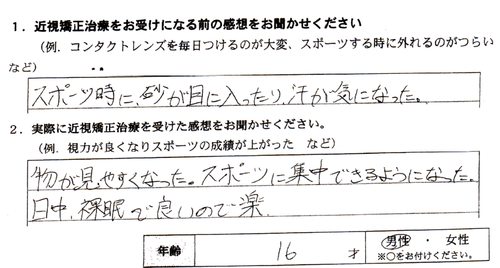 1. 近視矯正治療をお受けになる前の感想をお聞かせください
(例. コンタクトレンズを毎日つけるのが大変、スポーツする時に外れるのがつらい
など)
スポーツ時に、砂が目に入ったり、汗が気になった。
2. 実際に近視矯正治療を受けた感想をお聞かせください。
(例. 視力が良くなりスポーツの成績が上がった など)
物が見やすくなった。スポーツに集中できるようになった。
日中、裸眠で良いので楽
年齢 16 才 男性 ・ 女性
※○をお付けください。